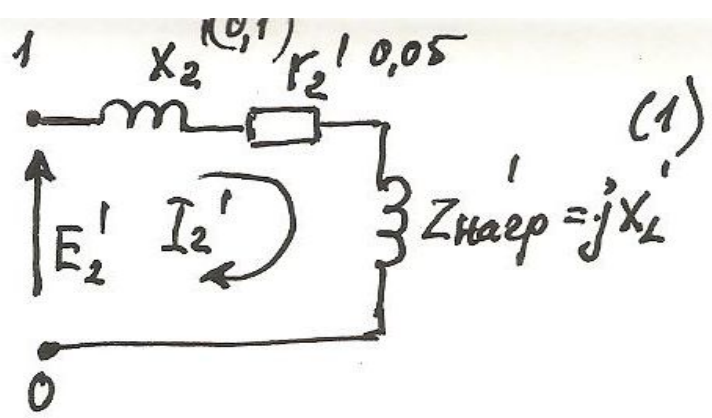 1
X₂'(0,1) r₂' 0,05
(1)
E₂' I₂' Zнагр' = jX_L'
0